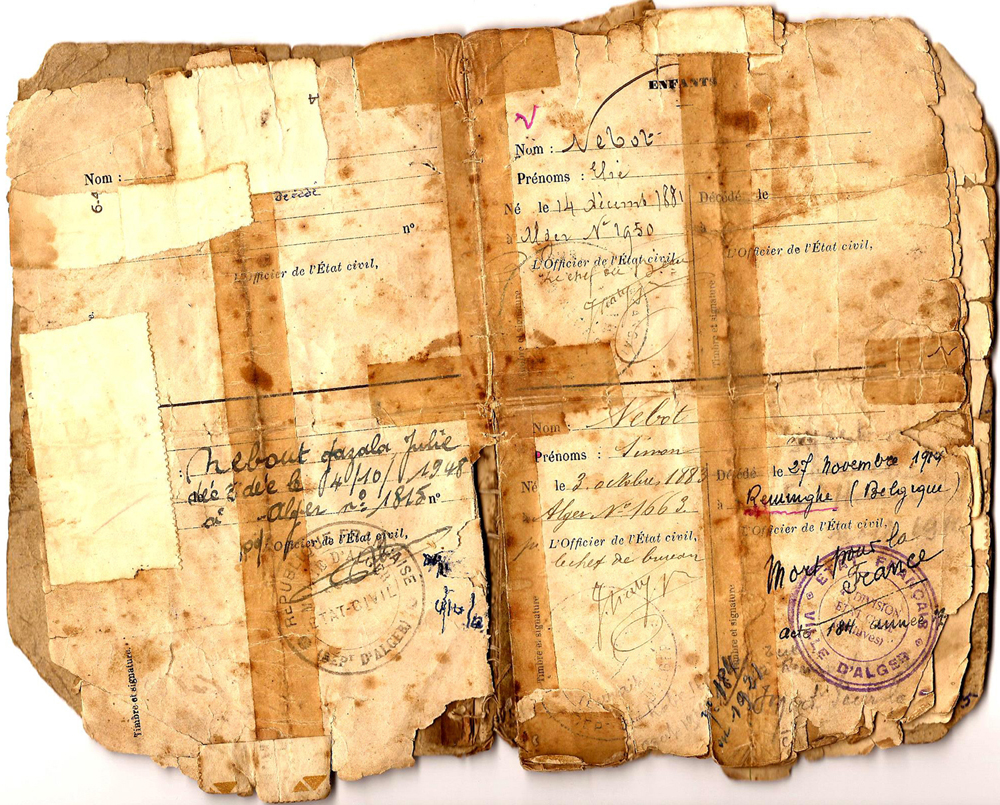 4
Nom :
6-4
décédé
nº
L'Officier de l'État civil,
Nebout Lazala Julie
décédée le 14/10/1948
à Alger nº 1815 nº
L'Officier de l'État civil,
RÉPUBLIQUE FRANÇAISE
MAIRIE D'ALGER
ÉTAT-CIVIL
(DÉPT D'ALGER)
Timbre et signature.
ENFANTS
Nom : Nebot
Prénoms : Elie
Né le 14 décemb 1881 Décédé le
à Alger Nº 1950 à
L'Officier de l'État civil, L'Officier de l'État civil,
Le chef de
Timbre et signature
Nom : Nebot
Prénoms : Simon
Né le 3 octobre 1883 Décédé le 27 novembre 1914
à Alger Nº 1663 à Reninghe (Belgique)
L'Officier de l'État civil, L'Officier de l'État civil,
le chef de bureau
Mort pour la
France
acte 184 année
VILLE D'ALGER
DIVISION
Timbre et signature
Timbre et signature
nº 184
1921